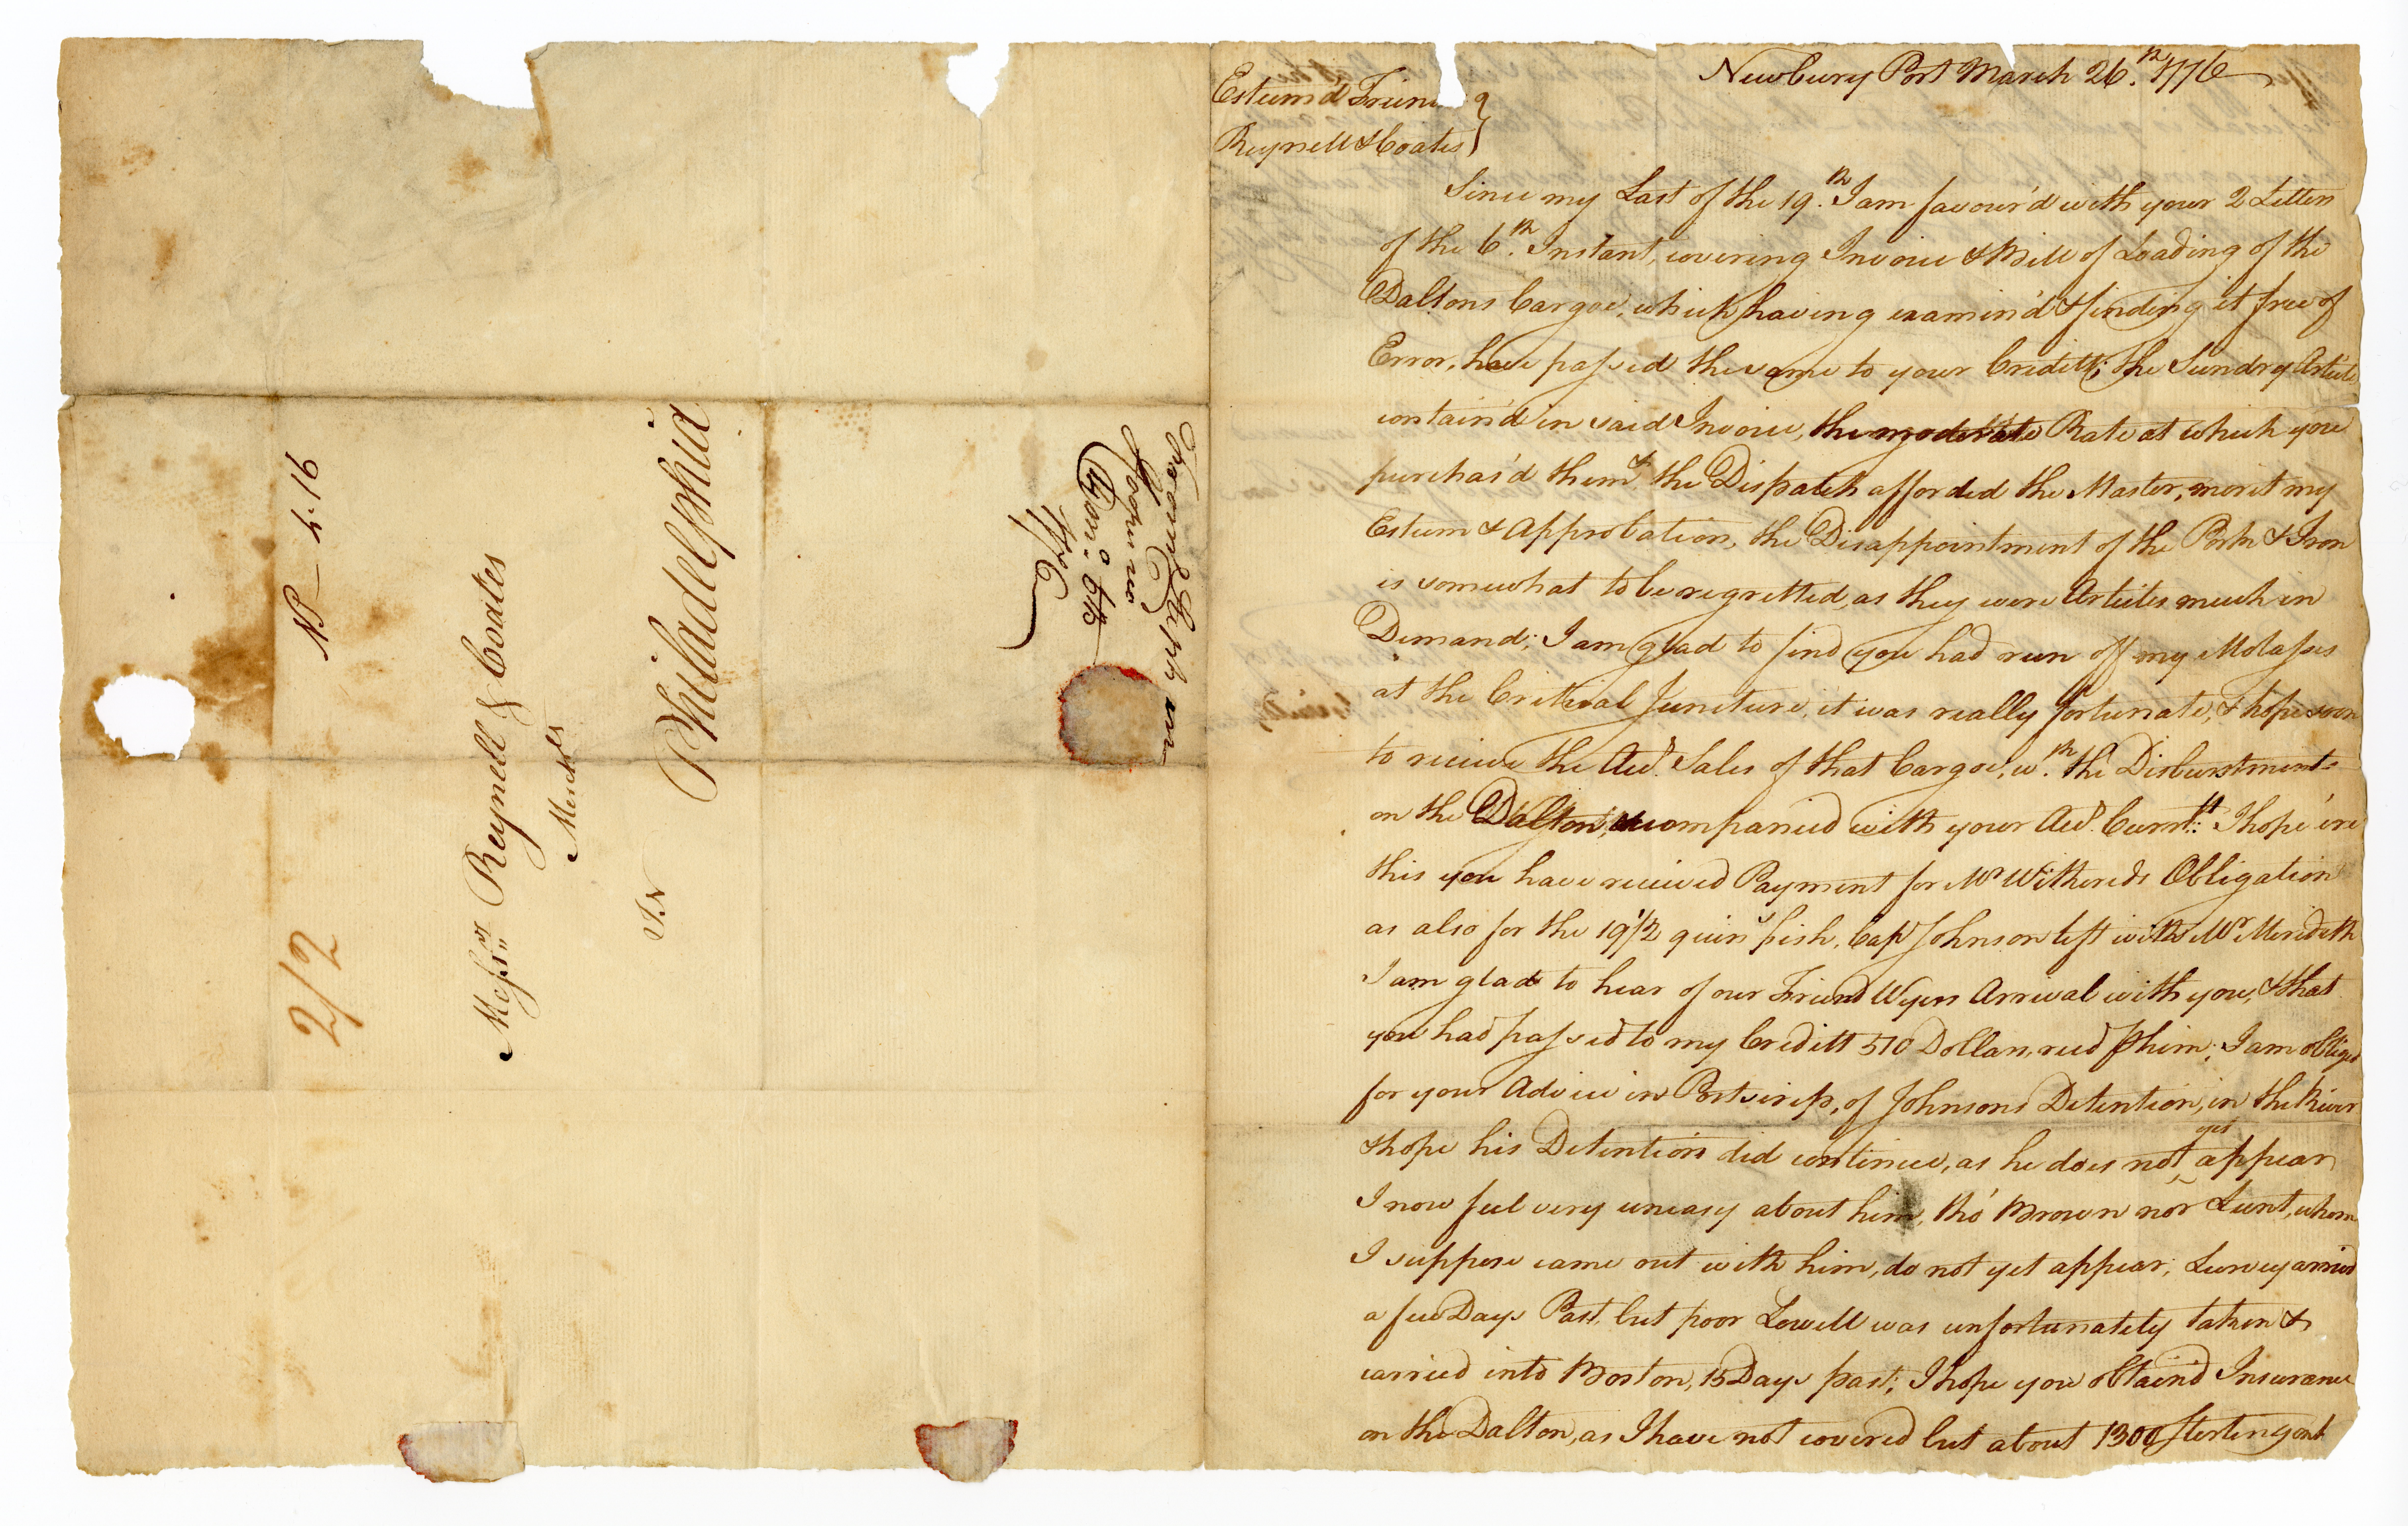 Newbury Port March 26.th 1776
Esteem'd Friend
Reynell & Coates
Since my Last of the 19.th I am favour'd with your 2 Letters
of the 6.th Instant, covering Invoice & Bill of Loading of the
Daltons Cargoe, which having examin'd & finding it free of
Error, have passed the same to your Creditt; the Sundry Article
contain'd in said Invoice, the moderate Rate at which you
purchas'd them & the Dispatch afforded the Master, merit my
Esteem & Approbation, the Disappointment of the Pork & Iron
is somewhat to be regretted, as they were Articles much in
Demand; I am glad to find you had run off my Molasses
at the Critical Juncture, it was really fortunate, & hope soon
to receive the Acct. Sales of that Cargoe, w.th the Disburstments
on the Dalton, accompanied with your Acct. Currtt: I hope 'ere
this you have received Payment for Mr Withereds Obligation
as also for the 19½ quins fish, Capt Johnson left with Mr Meredith
I am glad to hear of our Friend Wyers Arrival with you, & that
you had passed to my Creditt 510 Dollars, recd ⅌ him; I am obliged
for your Advice in Postscrip, of Johnsons Detention, in the River
& hope his Detention did continue, as he does not yet appear
I now feel very uneasy about him, tho' Brown nor Lunt, whom
I suppose came out with him, do not yet appear; Survey arrived
a few Days Past, but poor Lowell was unfortunately taken &
carried into Boston, 15 Days past; I hope you obtain'd Insurance
on the Dalton, as I have not covered but about 1300 Sterling on it
NP— 4.16
2/2
Messrs Reynell & Coates
Merchts
In
Philadelphia
Newbury Port
1776